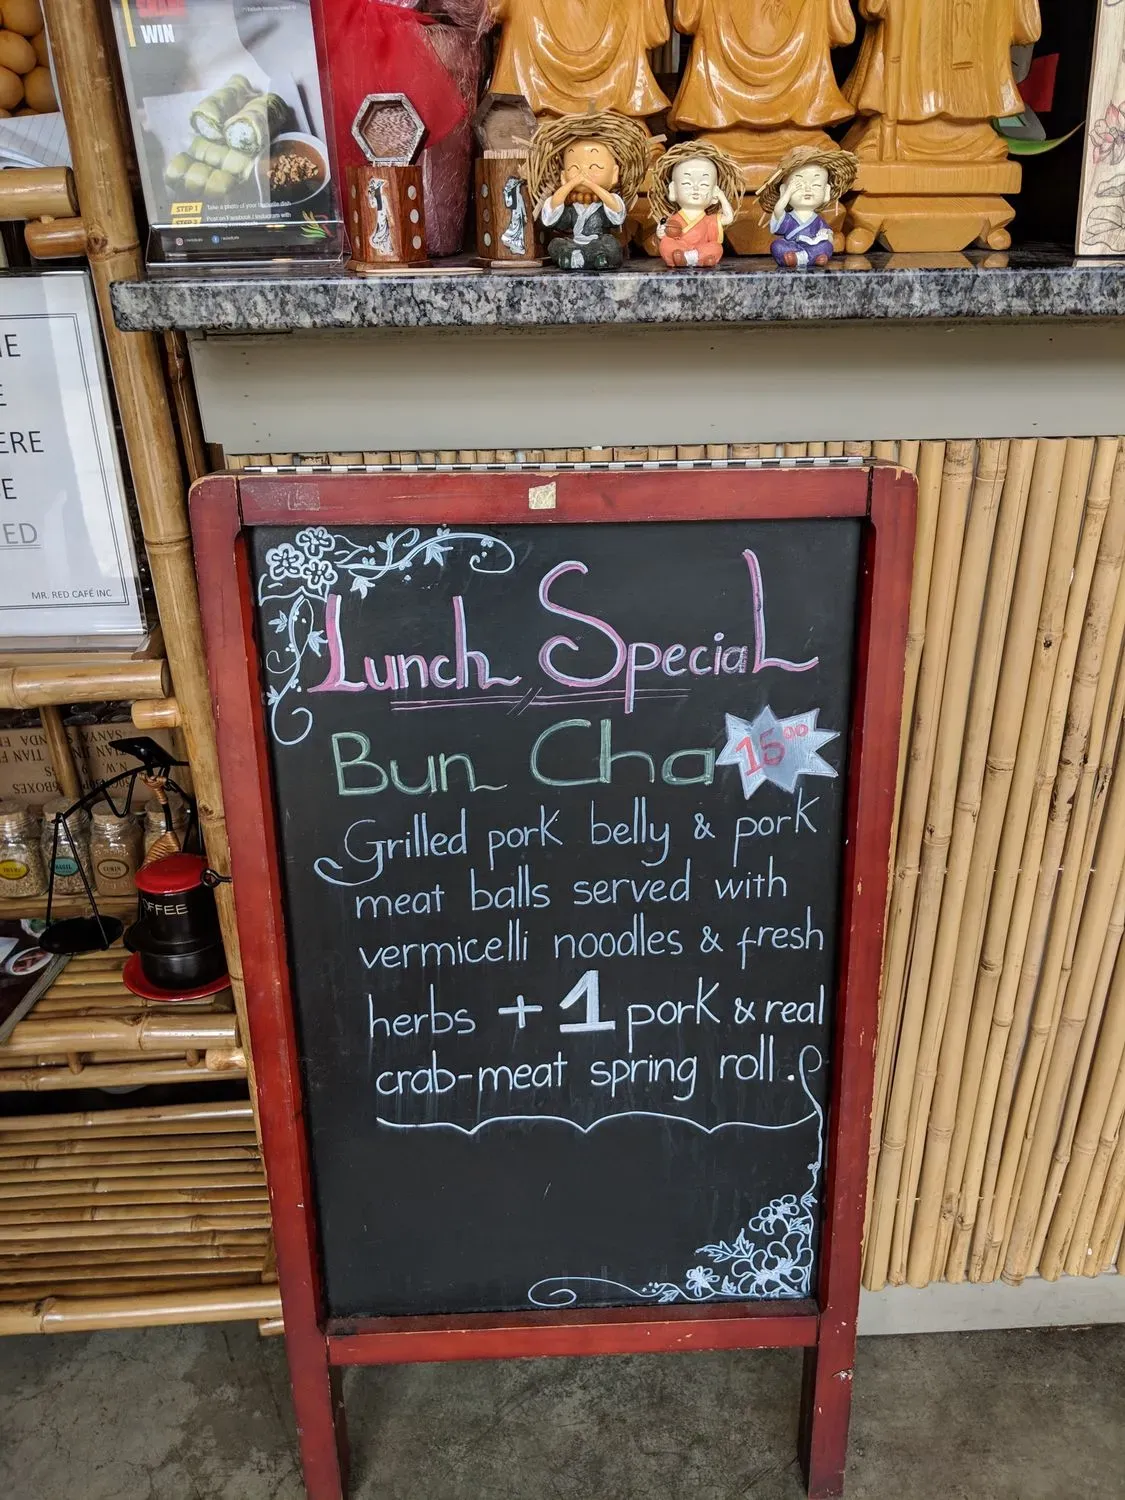 WIN
STEP 1 Take a photo of your favourite dish
STEP 2 Post on Facebook / Instagram with
ERE
ED
MR. RED CAFÉ INC
Lunch Special
Bun Cha 15⁰⁰
Grilled pork belly & pork
meat balls served with
vermicelli noodles & fresh
herbs + 1 pork & real
crab-meat spring roll.
COFFEE